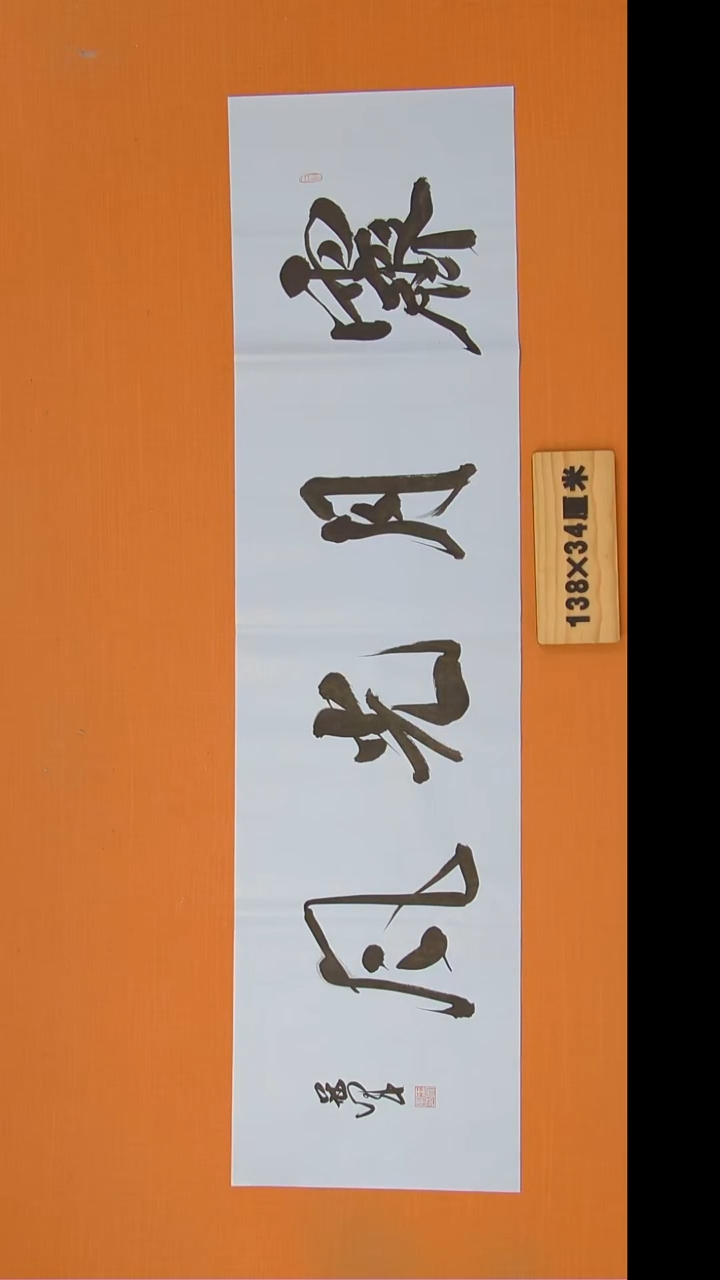 霽月光风
138×34厘米